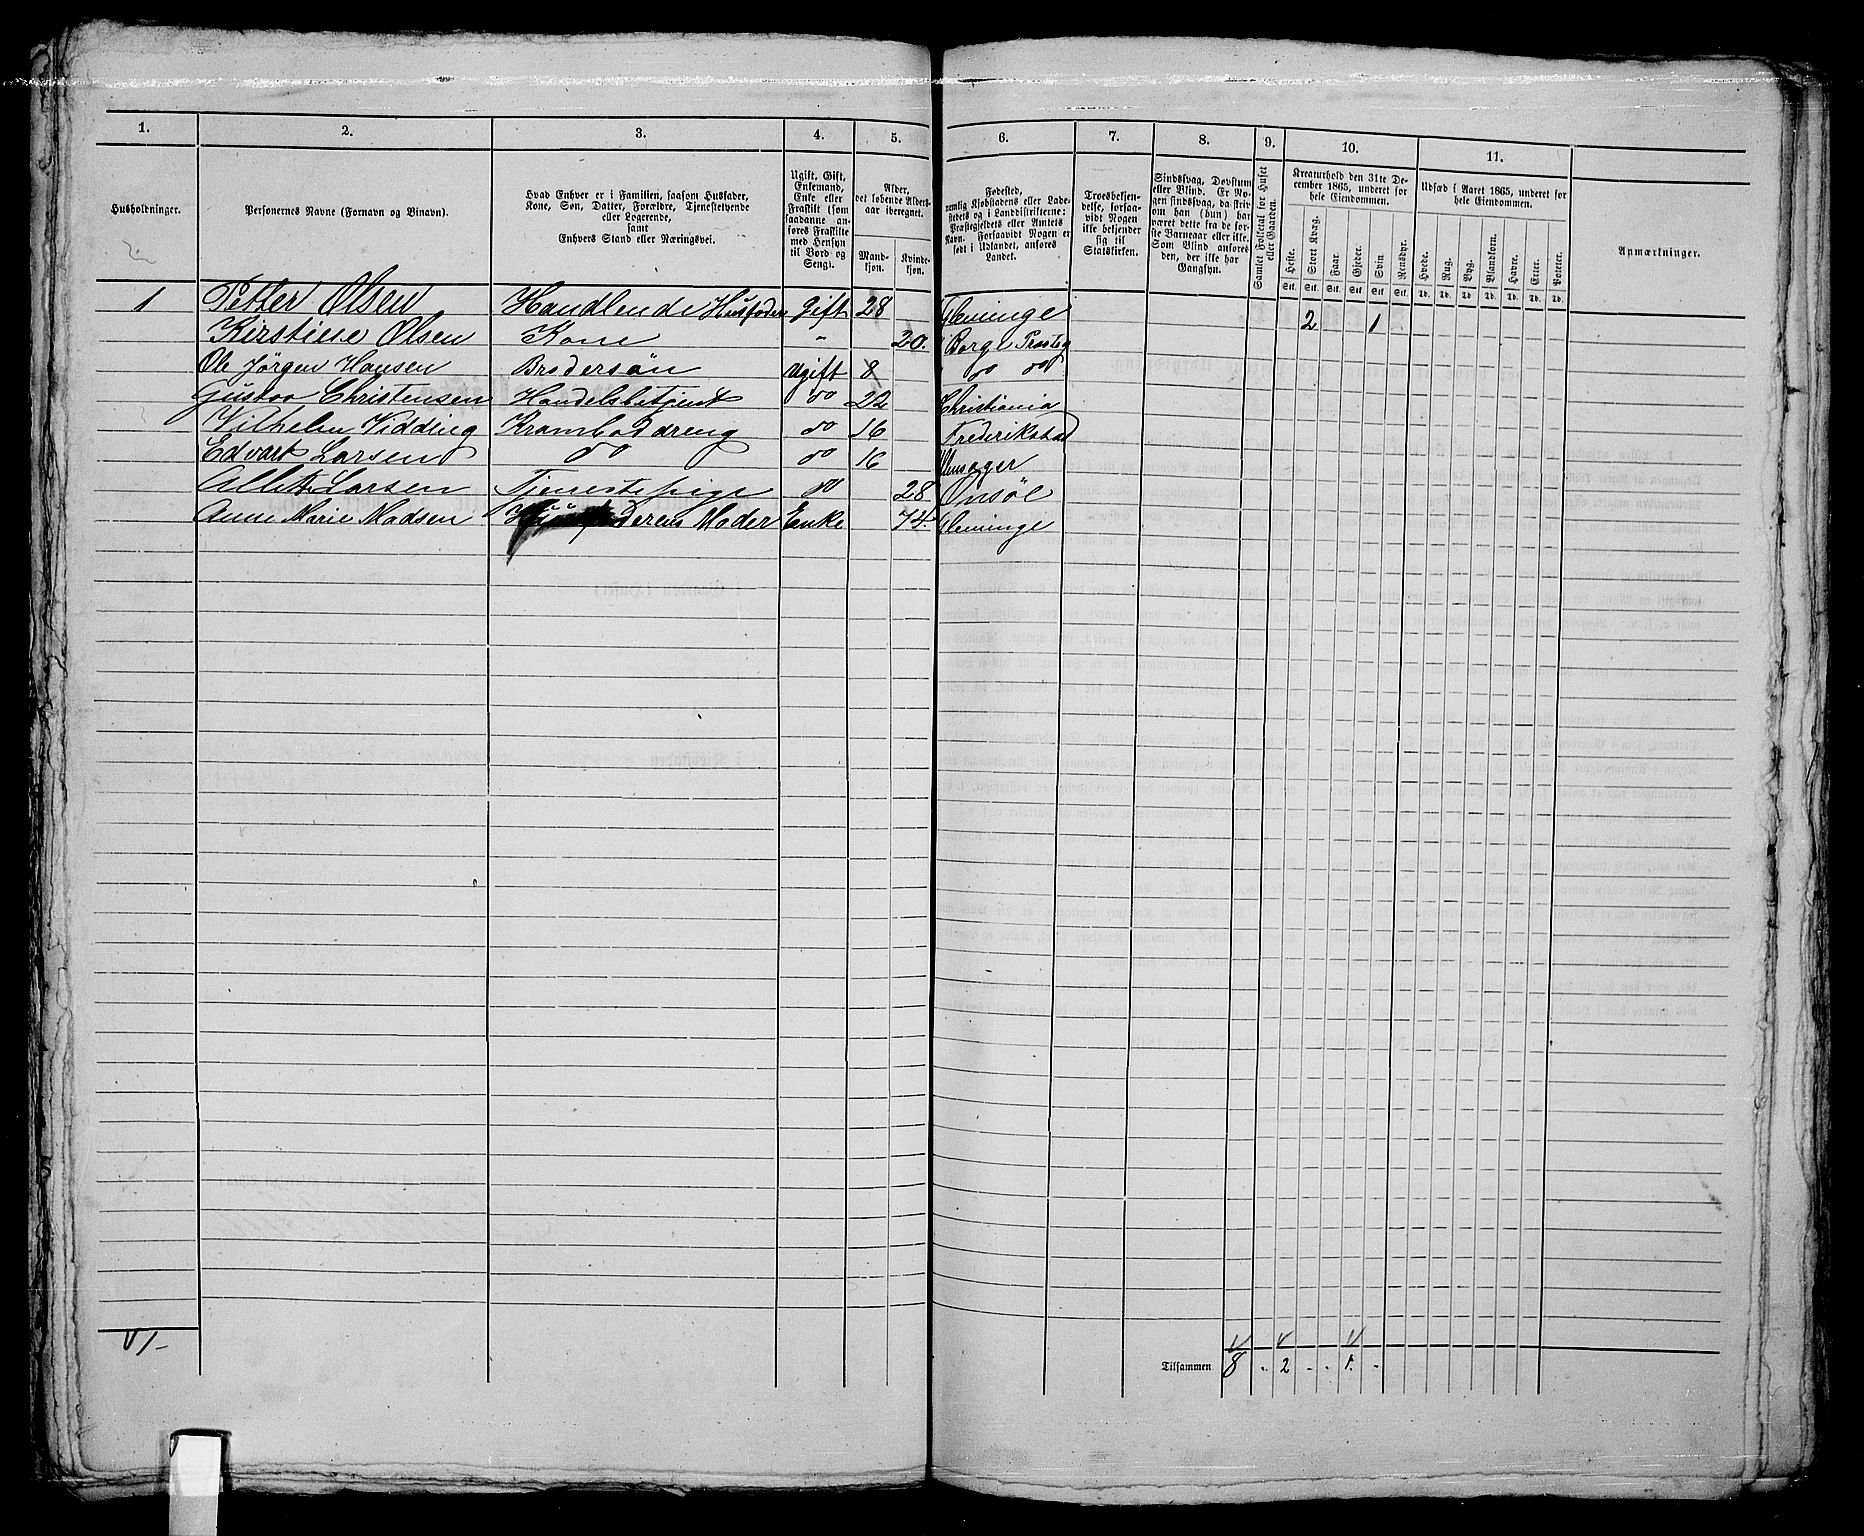 1. 2. 3. 4. 5. 6. 7. 8. 9. 10. 11.
Husholdninger.
Personernes Navne (Fornavn og Binavn).
Hvad Enhver er i Familien, saasom Husfader,
Kone, Søn, Datter, Forældre, Tjenestetyende
eller Logerende,
samt
Enhvers Stand eller Næringsvei.
Ugift, Gift,
Enkemand,
Enke eller
Fraskilt (som
saadanne an-
føres Fraskilte
med Hensyn
til Bord og
Seng).
Alder,
det løbende Alders-
aar iberegnet.
Mand-
kjøn.
Kvinde-
kjøn.
Fødested,
nemlig Kjøbstadens eller Lade-
stedets og i Landdistrikterne:
Præstegjeldets eller Amtets
Navn. Forsaavidt Nogen er
født i Udlandet, anføres
Landet.
Troesbekjen-
delse, forsaa-
vidt Nogen
ikke bekjender
sig til
Statskirken.
Sindssvag, Døvstum
eller Blind. Er No-
gen sindssvag, da skriv
om han (hun) har
været dette fra de før-
ste Barneaar eller ikke.
Som Blind anføres
den, der ikke har
Gangsyn.
Samlet Folketal for Huset
eller Gaarden.
Kreaturhold den 31te De-
cember 1865, underet for
hele Eiendommen.
Heste. Stort Kvæg. Faar. Gjeder. Svin. Rensdyr.
Stk. Stk. Stk. Stk. Stk. Stk.
Udsæd i Aaret 1865, underet for
hele Eiendommen.
Hvede. Rug. Byg. Blandkorn. Havre. Erter. Poteter.
Td. Td. Td. Td. Td. Td. Td.
Anmærkninger.
1 Petter Olsen Handlende Husfader gift 28 Glemminge 2 1
Kirstine Olsen Kone " 20. Borge Præsteg
Ole Jörgen Hansen Brodersön Ugift 8 do do
Gustav Christensen Handelsbetjent do 22 Christiania
Vilhelm Vidding Kramboddreng do 16 Frederikstad
Edvart Larsen do do 16
Larsen Tjenestepige do 28 Onsöe
Anne Marie Madsen Husfaderens Moder Enke 74. Gleminge
Tilsammen 8 " 2 - - 1. -